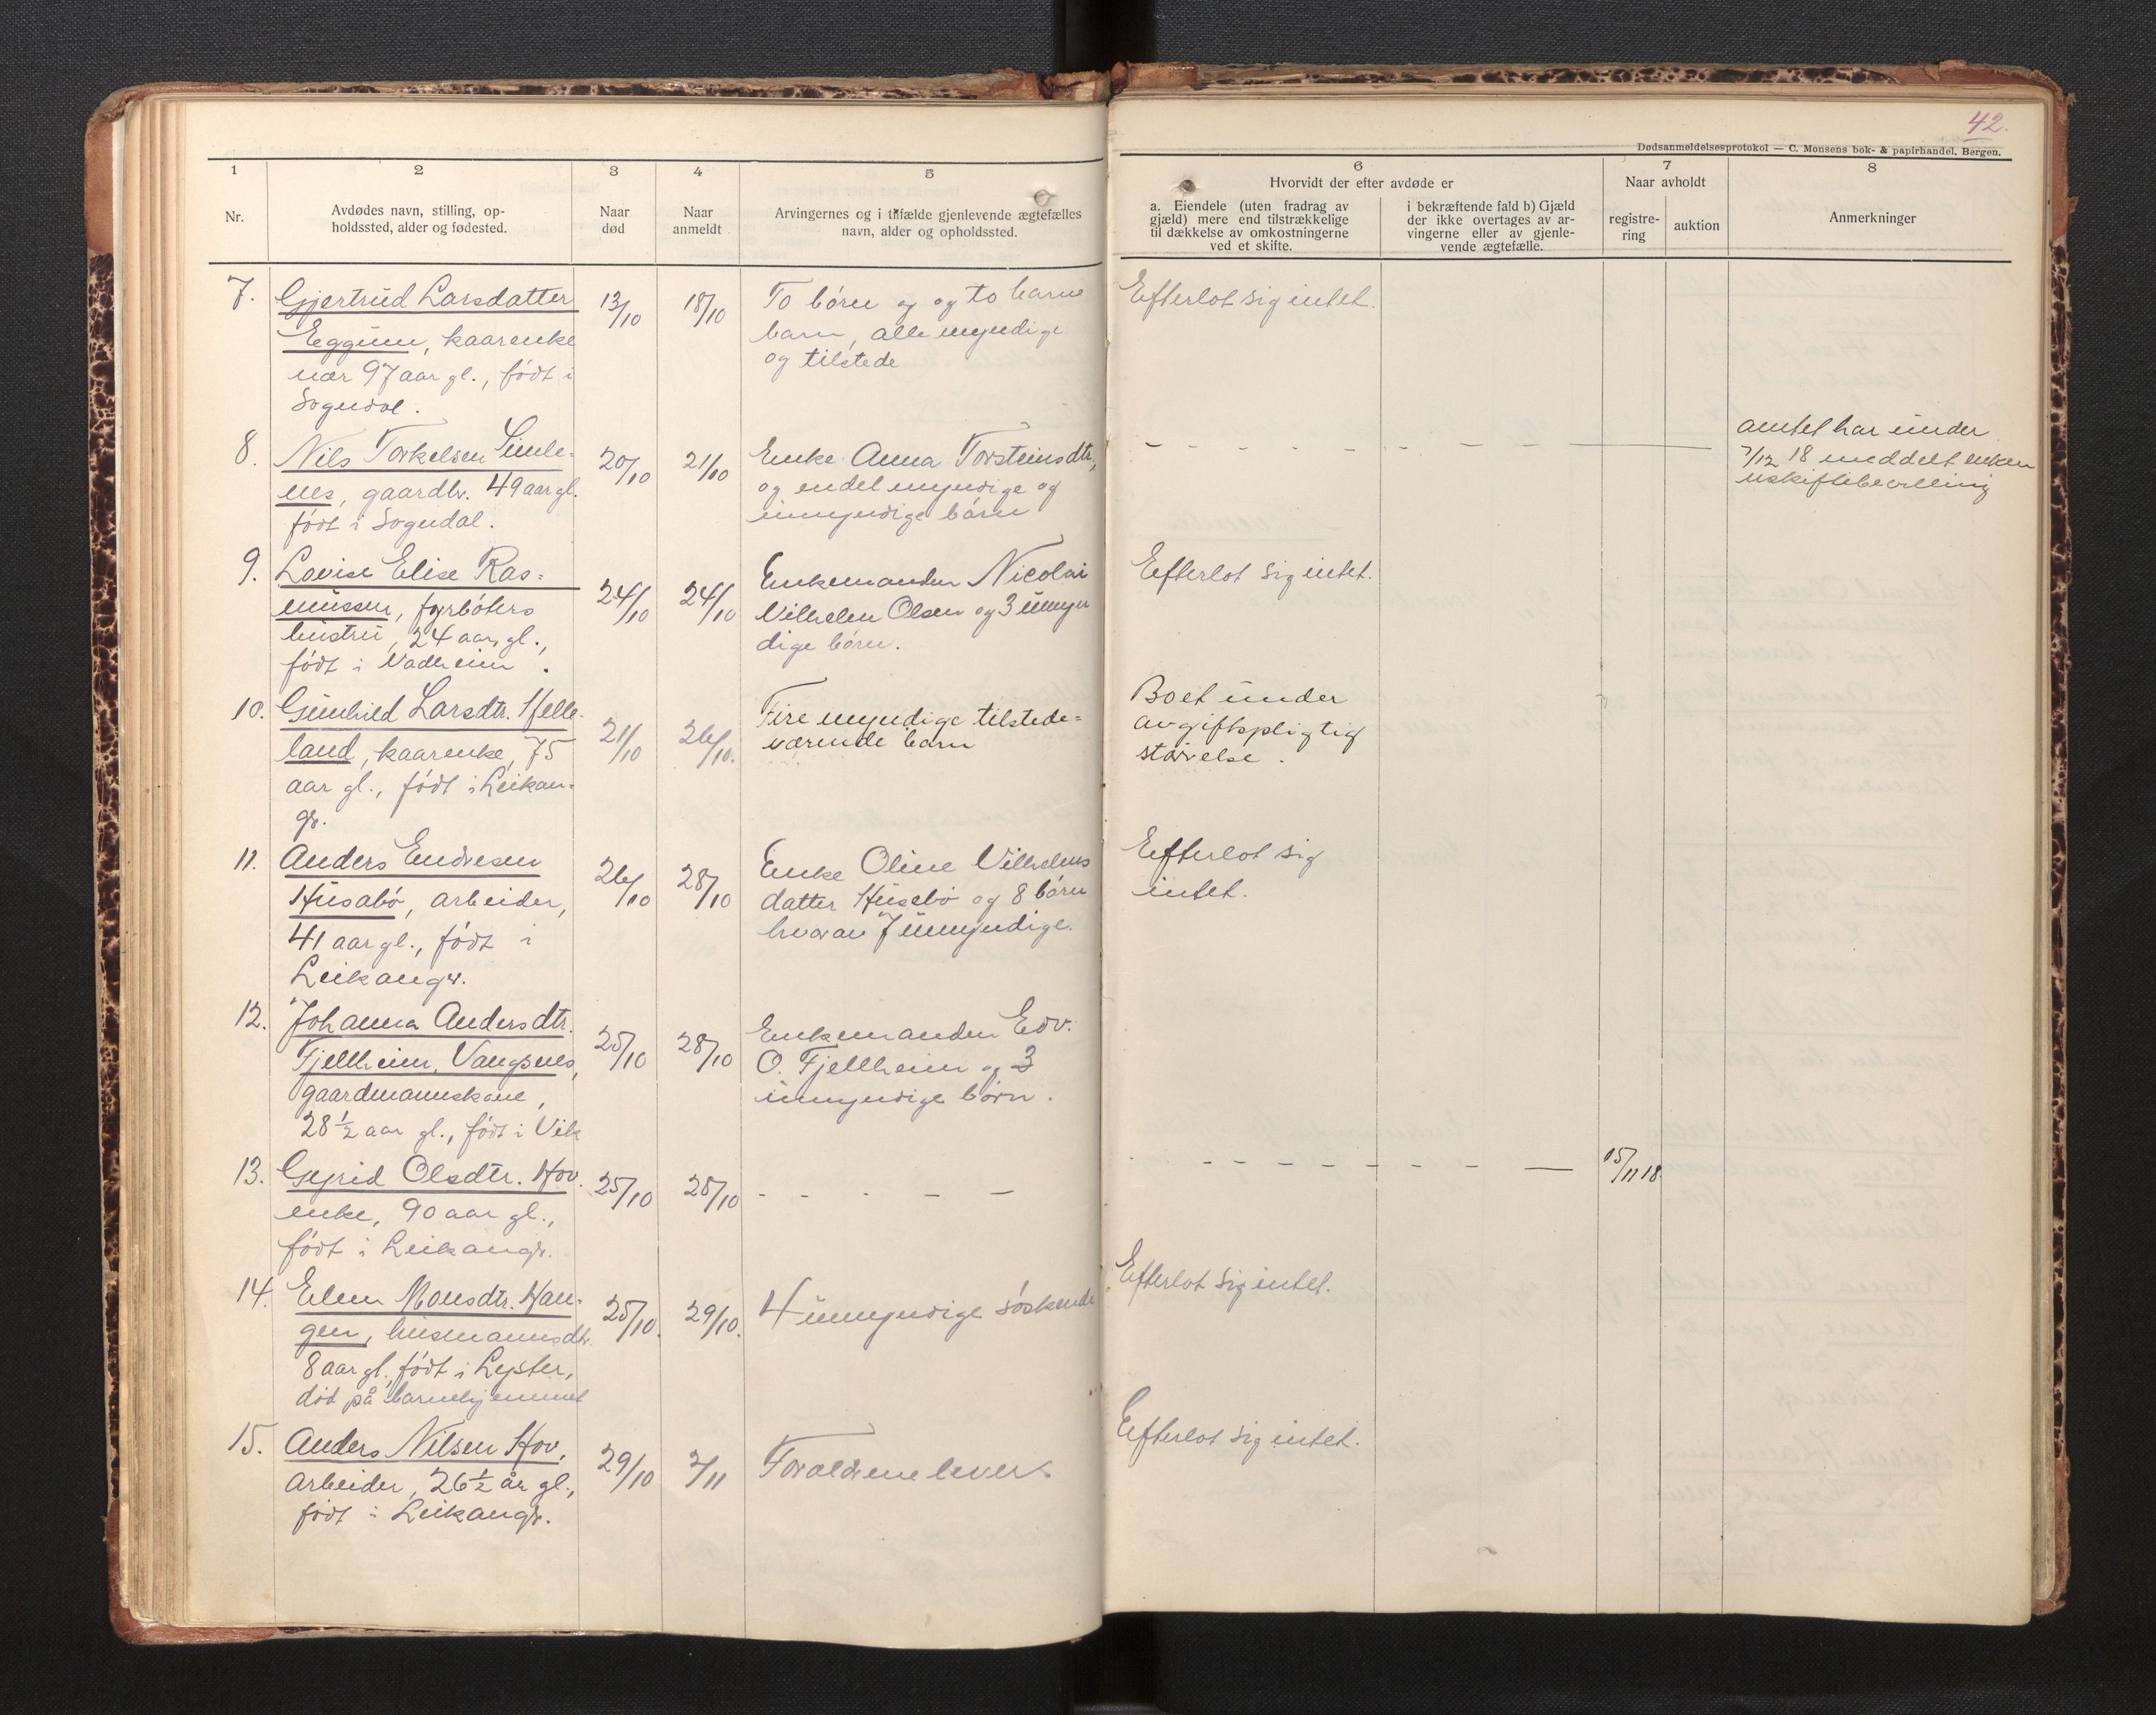 42.
Dødsanmeldelsesprotokol — C. Monsens bok- & papirhandel, Bergen.
1 2 3 4 5 6 7 8
Nr.
Avdødes navn, stilling, op-
holdssted, alder og fødested.
Naar
død
Naar
anmeldt
Arvingernes og i tilfælde gjenlevende ægtefælles
navn, alder og opholdssted.
Hvorvidt der efter avdøde er
a. Eiendele (uten fradrag av
gjæld) mere end tilstrækkelige
til dækkelse av omkostningerne
ved et skifte.
i bekræftende fald b) Gjæld
der ikke overtages av ar-
vingerne eller av gjenle-
vende ægtefælle.
Naar avholdt
registre-
ring
auktion
Anmerkninger
7.
Gjertrud Larsdatter
Eggum, kaarenke
nær 97 aar gl., født i
Sogndal.
13/10
18/10
To børn og og to barne
barn, alle myndige
og tilstede
Efterlot sig intet.
8.
Nils Torkelsen Simle-
nes, gaardbr. 49 aar gl.
født i Sogndal.
20/10
21/10
Enke Anna Torsteinsdtr,
og endel myndige og
umyndige børn
- - - - - - -
amtet har under
7/12 18 meddelt enken
uskiftebevilling
9.
Lovise Elise Ras=
mussen, fyrbøters
hustru, 24 aar gl.,
født i Vadheim.
24/10
24/10
Enkemanden Nicolai
Vilhelm Olsen og 3 umyn
dige børn.
Efterlot sig intet.
10.
Gunhild Larsdtr. Helle-
land, kaarenke, 75
aar gl., født i Leikan-
gr.
21/10
26/10.
Fire myndige tilstede=
værende barn
Boet under
avgiftspligtig
størelse.
11.
Anders Endresen
Husabø, arbeider,
41 aar gl., født i
Leikangr.
26/10
28/10
Enke Oline Vilhelms
datter Husebø og 8 børn
hvorav 7 umyndige.
Efterlot sig
intet.
12.
Johanna Andersdtr.
Fjellheim, Vangsnes,
gaardmannskone,
28 ½ aar gl., født i Vik
25/10
28/10
Enkemanden Edv.
O. Fjellheim og 3
umyndige børn.
13.
Gyrid Olsdtr. Hov.
enke, 90 aar gl.,
født i Leikangr.
25/10
28/10
- - - - -
- - - - - - -
15/11 18.
14.
Elen Monsdtr. Hau-
gen, husmannsdtr.
8 aar gl., født i Lyster,
død på barnehjemmet
25/10.
29/10.
4 umyndige søskende
Efterlot sig intet.
15.
Anders Nilsen Hov,
arbeider, 26 ½ år gl.,
født i Leikangr.
29/10
2/11
Forældrene lever
Efterlot sig intet.